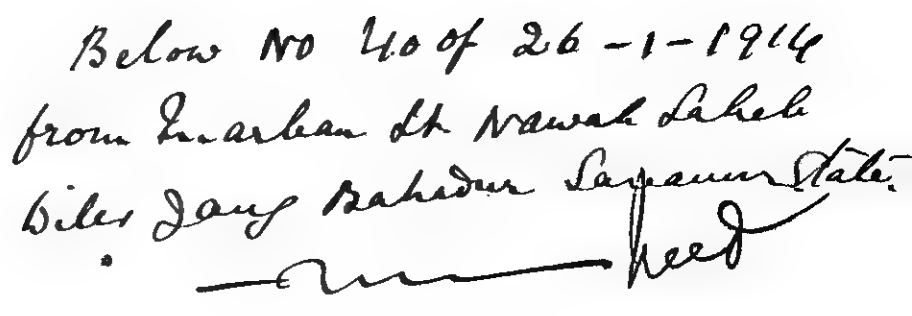 Below No 40 of 26-1-1914
from Meharban Lt Nawab Saheb
Diler Jang Bahadur Savanur State.